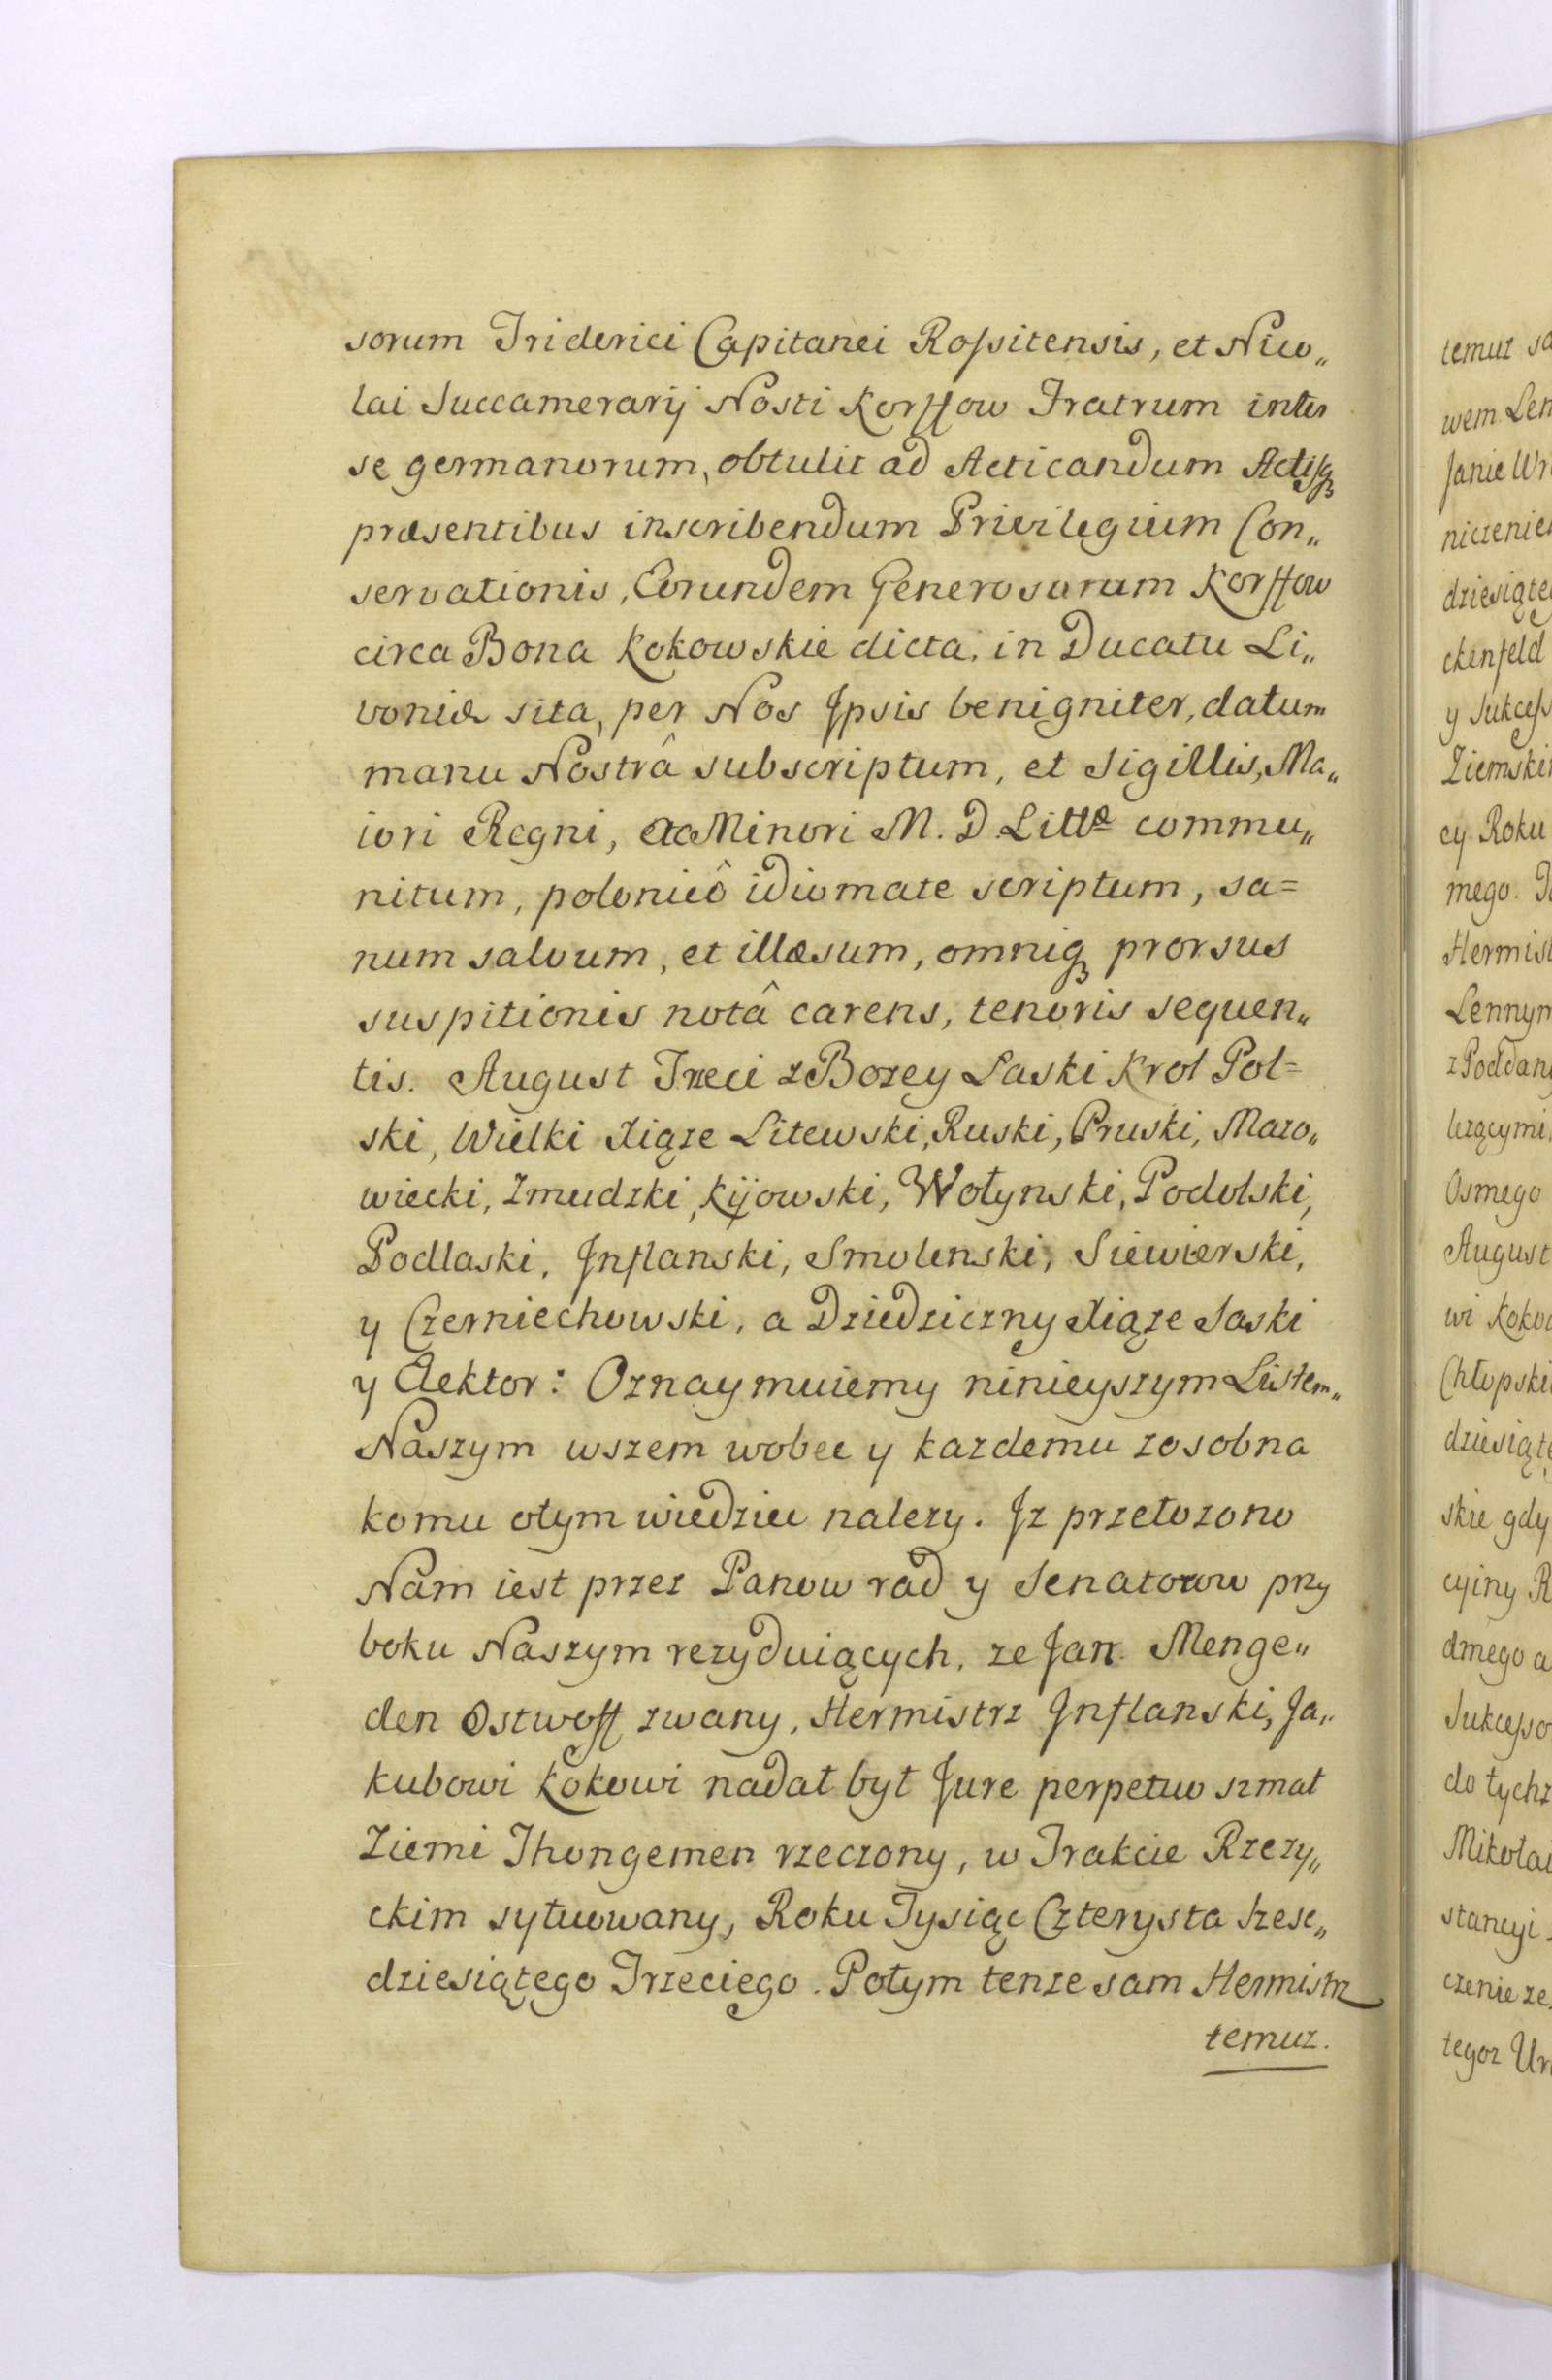 sorum Friderici Capitanei Rossitensis, et Nico„
lai Succamerarij Nosti Korffow Fratrum inter
se germanorum, obtulit ad Acticandum Actisq́
præsentibus inscribendum Privilegium Con„
servationis, Eorundem Generosorum Korffow
circa Bona Kokowskie dicta, in Ducatu Li„
voniæ sita, per Nos Jpsis benigniter, datum
manu Nostrâ subscriptum, et Sigillis, Ma„
iori Regni, ac Minori M. D. Littæ commu„
nitum, polonicô idiomate scriptum, sa=
num salvum, et illæsum, omniq́ prorsus
suspitionis notâ carens, tenoris sequen„
tis. August Trzeci z Bozey Łaski Krol Pol=
ski, Wielki Xiąze Litewski, Ruski, Pruski, Mazo„
wiecki, Zmudzki, Kijowski, Wołynski, Podolski,
Podlaski, Jnflanski, Smolenski, Siewierski,
y Czerniechowski, a Dziedziczny Xiąze Saski
y Elektor: Oznaymuiemy ninieyszym Listem„
Naszym wszem wobec y kazdemu zosobna
komu otym wiedziec nalezy. Jz przełozono
Nam iest przez Panow rad y Senatorow przy
boku Naszym rezyduiących, ze Jan Menge„
den Ostwoff zwany, Hermistrz Jnflanski, Ja„
kubowi Kokowi nadał był Jure perpetuo szmat
Ziemi Thongemen rzeczony, w Trakcie Rzezy„
ckim sytuowany, Roku Tysiąc Czterysta Szesc„
dziesiątego Trzeciego. Potym tenze sam Hermistrz
temuz.
temuz sa
wem Len
Janie Wr
niczenie
dziesiąte
ckenfeld
y Sukcess
Ziemski
cy Roku
mego.
Hermist
Lennym
z Poddan
lezącymi
Osmego
August
wi Koko
Chłopski
dziesiąte
skie gdy
cyiny R
dmego a
Sukcesso
do tychz
Mikołai
stancyi
czenie ze
tegoz Ur